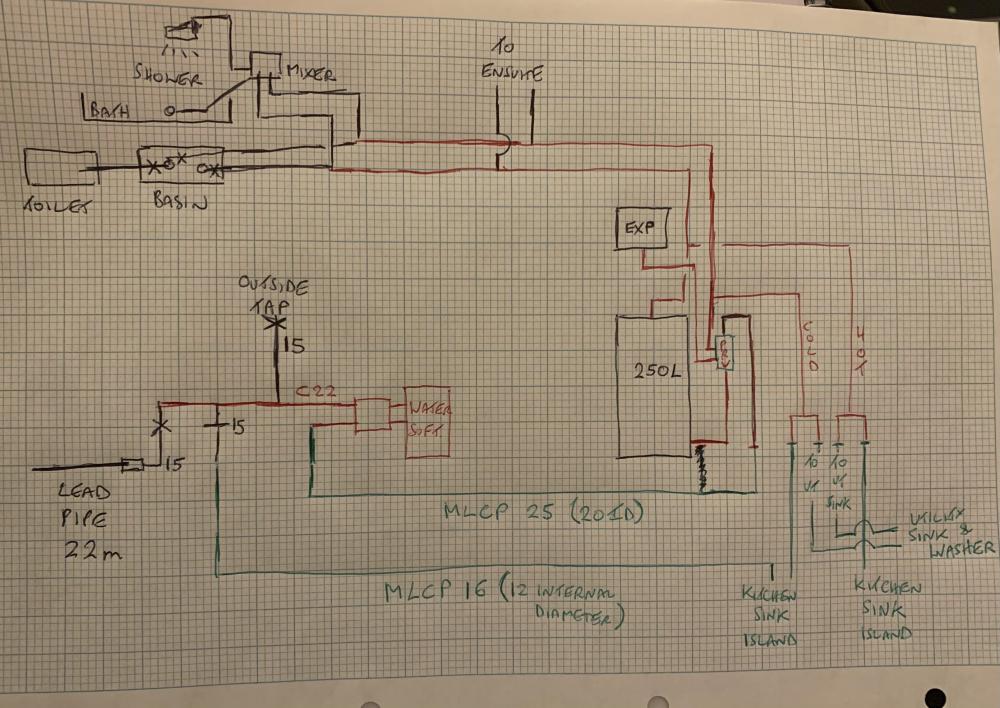 TO
ENSUITE
SHOWER
MIXER
BATH
TOILET
BASIN
EXP
OUTSIDE
TAP
15
250L
PRV
COLD
HOT
C22
WATER
SOFT.
15
15
LEAD
PIPE
22m
TO
UT
TO
UT
SINK
MLCP 25 (20 ID)
UTILITY
SINK &
WASHER
MLCP 16 (12 INTERNAL
DIAMETER)
KITCHEN
SINK
ISLAND
KITCHEN
SINK
ISLAND